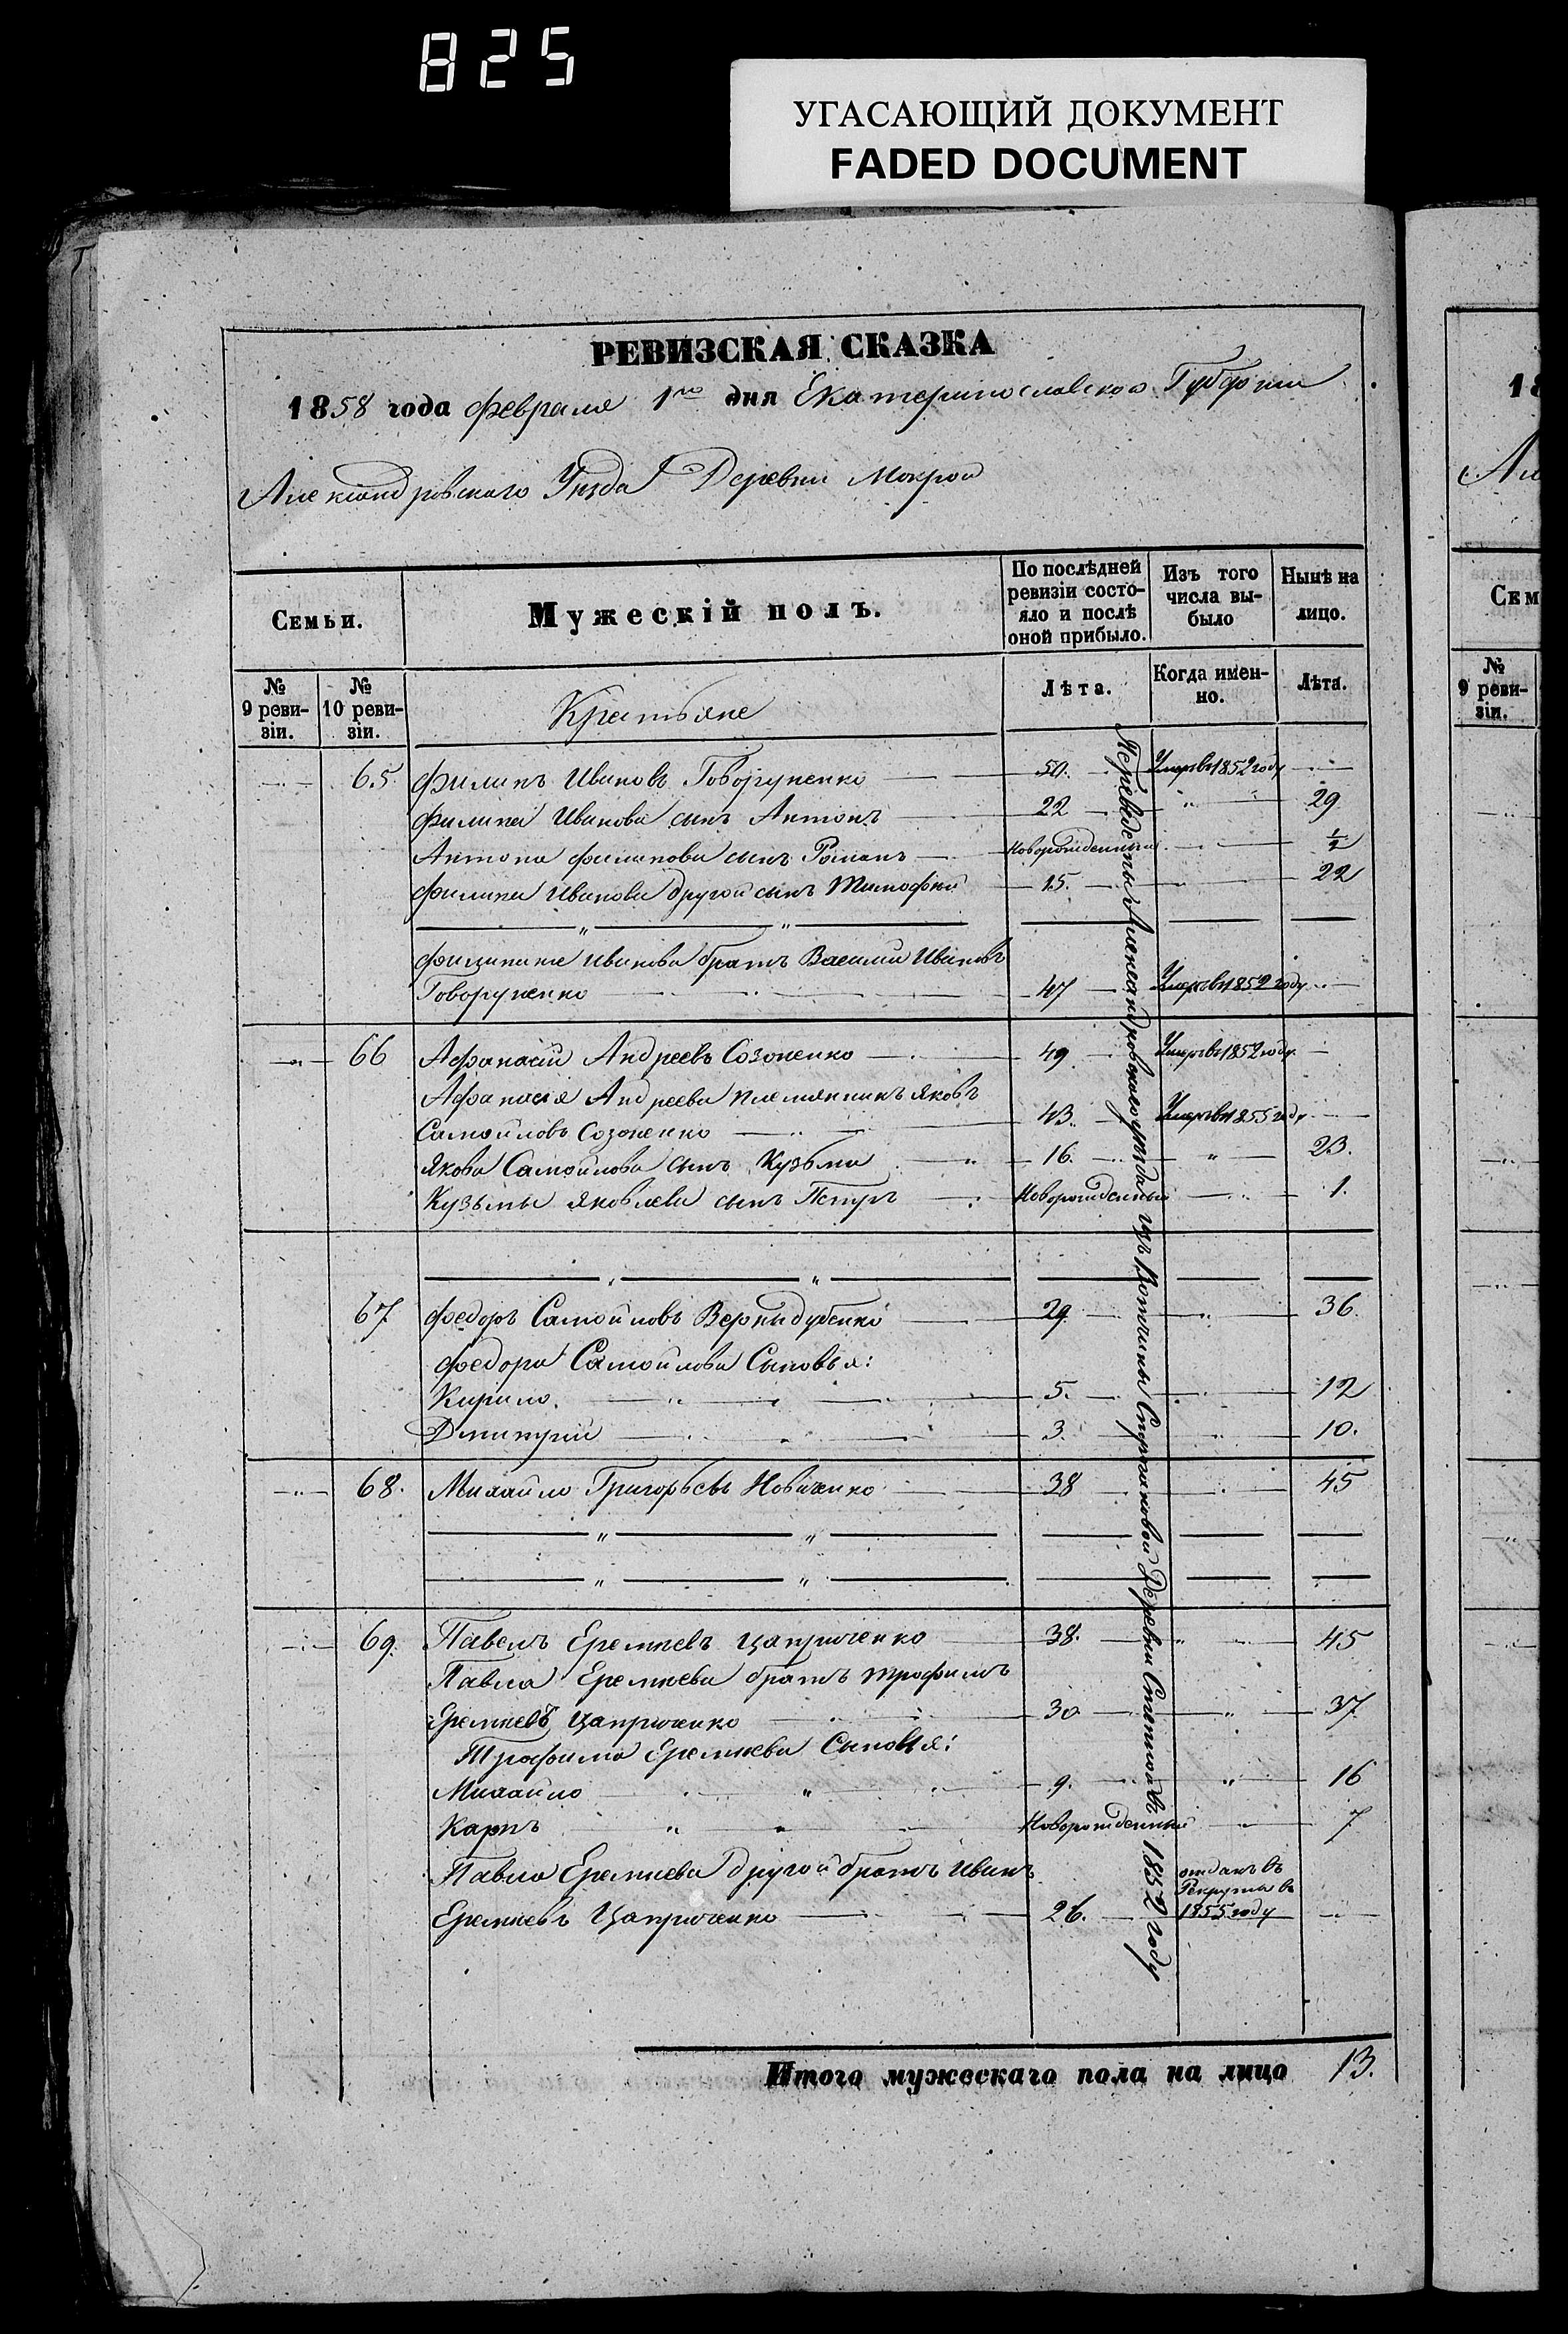 825
УГАСАЮЩИЙ ДОКУМЕНТ
FADED DOCUMENT
РЕВИЗСКАЯ СКАЗКА
1858 года Февраля 1го дня Екатеринославской Губерніи
Александровскаго Уѣзда Деревни Мокрой
Семьи.
Мужескій полъ.
По послѣдней ревизіи состояло и послѣ оной прибыло.
Изъ того числа выбыло
Нынѣ на лицо.
№ 9 ревизіи.
№ 10 ревизіи.
Крестьяне
Лѣта.
Когда именно.
Лѣта.
65. Филипъ Ивановъ Говоруненко 50. Умеръ въ 1852 году
Филипа Иванова сынъ Антонъ 22 " 29
Антона Филипова сынъ Романъ Новорожденный ½
Филипа Иванова другой сынъ Тимофѣй 15. 22
Филипа Иванова братъ Василій Ивановъ
Говоруненко 47 Умеръ въ 1852 году
66 Афанасій Андреевъ Созоненко 49. Умеръ въ 1852 году
Афанасія Андреева племянникъ Яковъ
Самойловъ Созоненко 43. Умеръ въ 1855 году
Якова Самойлова сынъ Кузьма 16. " 23.
Кузьмы Яковлева сынъ Петръ Новорожденный 1.
67 Федоръ Самойловъ Вернидубенко 29 36.
Федора Самойлова Сыновья:
Кирило. 5. 12
Дмитрій 3. 10.
68. Михайло Григорьевъ Новиченко 38 45
69. Павелъ Еремѣевъ Цапрюченко 38. 45
Павла Еремѣева братъ Трофимъ
Еремѣевъ Цапрюченко 30 37
Трофима Еремѣева Сыновья:
Михайло 9. 16
Карпъ Новорожденный 7
Павла Еремѣева другой братъ Иванъ
Еремѣевъ Цапрюченко 26. отданъ въ Рекруты въ 1855 году
Переведены Александровскаго уѣзда изъ Вотчины Деревни 1852 году
Итого мужескаго пола на лицо 13.
18
Ал
Сем
№ 9 ревизіи.